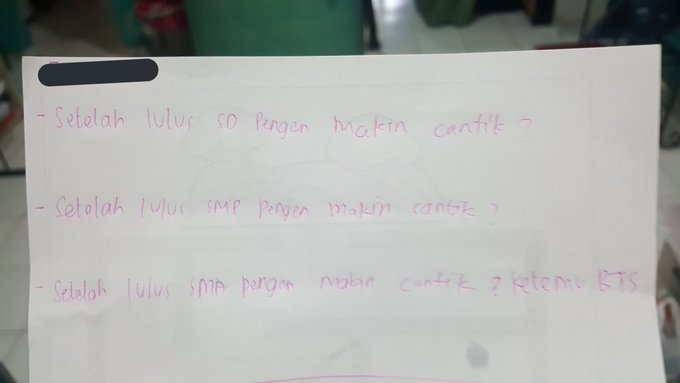 - Setelah lulus SD Pengen Makin cantik?
- Setelah lulus SMP pengen makin cantik?
- Setelah lulus SMA pengen makin cantik & ketemu BTS